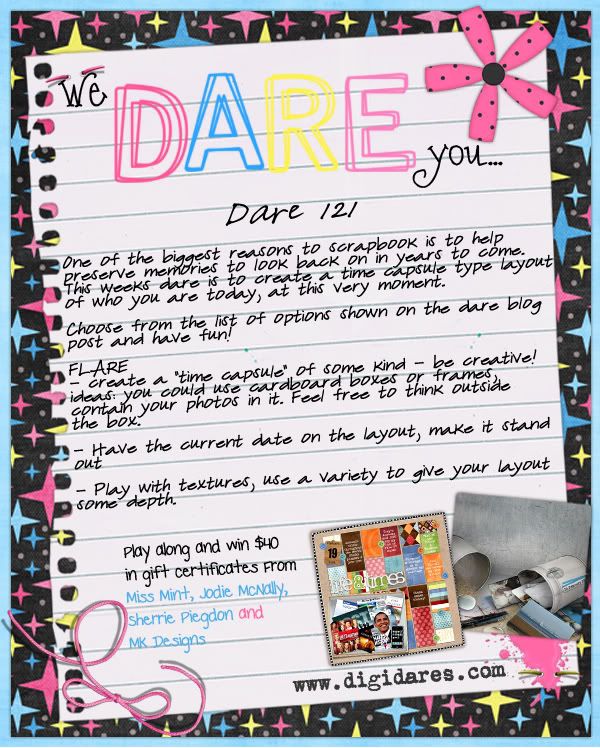 We
DARE
you...
Dare 121
One of the biggest reasons to scrapbook is to help
preserve memories to look back on in years to come.
This weeks dare is to create a time capsule type layout
of who you are today, at this very moment.
Choose from the list of options shown on the dare blog
post and have fun!
FLARE
- create a "time capsule" of some kind - be creative!
ideas: you could use cardboard boxes or frames,
contain your photos in it. Feel free to think outside
the box.
- Have the current date on the layout, make it stand
out
- Play with textures, use a variety to give your layout
some depth.
Play along and win $40
in gift certificates from
Miss Mint, Jodie McNally,
Sherrie Piegdon and
MK Designs
19
life & times
www.digidares.com